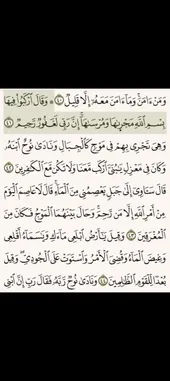 وَمَنْ ءَامَنَ وَمَآ ءَامَنَ مَعَهُۥٓ إِلَّا قَلِيلٌ ٤٠ ۞ وَقَالَ ٱرْكَبُوا۟ فِيهَا
بِسْمِ ٱللَّهِ مَجْر۪ىٰهَا وَمُرْسَىٰهَآ إِنَّ رَبِّى لَغَفُورٌ رَّحِيمٌ ٤١
وَهِىَ تَجْرِى بِهِمْ فِى مَوْجٍ كَٱلْجِبَالِ وَنَادَىٰ نُوحٌ ٱبْنَهُۥ
وَكَانَ فِى مَعْزِلٍ يَٰبُنَىَّ ٱرْكَب مَّعَنَا وَلَا تَكُن مَّعَ ٱلْكَٰفِرِينَ ٤٢
قَالَ سَـَٔاوِىٓ إِلَىٰ جَبَلٍ يَعْصِمُنِى مِنَ ٱلْمَآءِ قَالَ لَا عَاصِمَ ٱلْيَوْمَ
مِنْ أَمْرِ ٱللَّهِ إِلَّا مَن رَّحِمَ وَحَالَ بَيْنَهُمَا ٱلْمَوْجُ فَكَانَ مِنَ
ٱلْمُغْرَقِينَ ٤٣ وَقِيلَ يَٰٓأَرْضُ ٱبْلَعِى مَآءَكِ وَيَٰسَمَآءُ أَقْلِعِى
وَغِيضَ ٱلْمَآءُ وَقُضِىَ ٱلْأَمْرُ وَٱسْتَوَتْ عَلَى ٱلْجُودِىِّ وَقِيلَ
بُعْدًا لِّلْقَوْمِ ٱلظَّٰلِمِينَ ٤٤ وَنَادَىٰ نُوحٌ رَّبَّهُۥ فَقَالَ رَبِّ إِنَّ ٱبْنِى